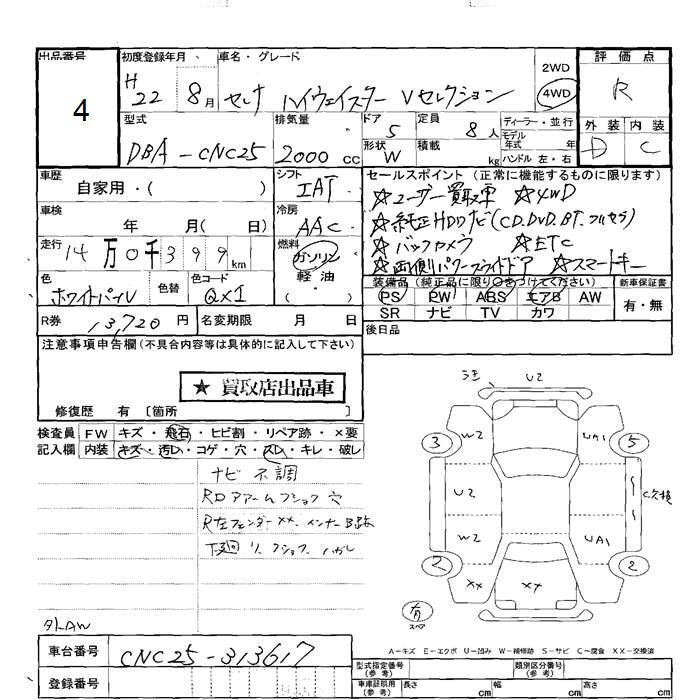 出品番号 初度登録年月 車名・グレード 評価点
4 H22 8月 セレナ ハイウェイスター Vセレクション 2WD 4WD R
型式 排気量 ドア 定員 ディーラー・並行 外装 内装
DBA-CNC25 2000cc 5 8人 モデル年式 年 D C
形状 W 積載 kg ハンドル 左・右
車歴 自家用・( ) シフト IAT セールスポイント (正常に機能するものに限ります)
☆ユーザー買取車 ☆4WD
車検 年 月( 日) 冷房 AAC ☆純正HDDナビ(CD.DVD.BT.フルセグ)
☆バックカメラ ☆ETC
走行 14万0千399km 燃料 ガソリン 軽油
☆両側パワースライドドア ☆スマートキー
色 ホワイトパール 色替 色コード QX1 装備品 (純正品に限り○をつけてください) 新車保証書
PS PW ABS エアB AW 有・無
R券 13,720円 名変期限 月 日 SR ナビ TV カワ
注意事項申告欄(不具合内容等は具体的に記入して下さい) 後日品
★ 買取店出品車
修復歴 有 〔箇所 〕
検査員 FW キズ・飛石・ヒビ割・リペア跡・×要
記入欄 内装 キズ・汚レ・コゲ・穴・スレ・キレ・破レ
ナビ不調
U2
W2 UA1
3 5
U2
W2 UA1
2 2
XX XY
有
スペア
A-キズ E-エクボ U-凹み W-補修跡 S-サビ C-腐食 XX-交換済
車台番号 CNC25-313617 型式指定番号(参考) 類別区分番号(参考)
登録番号 車庫証明用(参考) 長さ cm 幅 cm 高さ cm